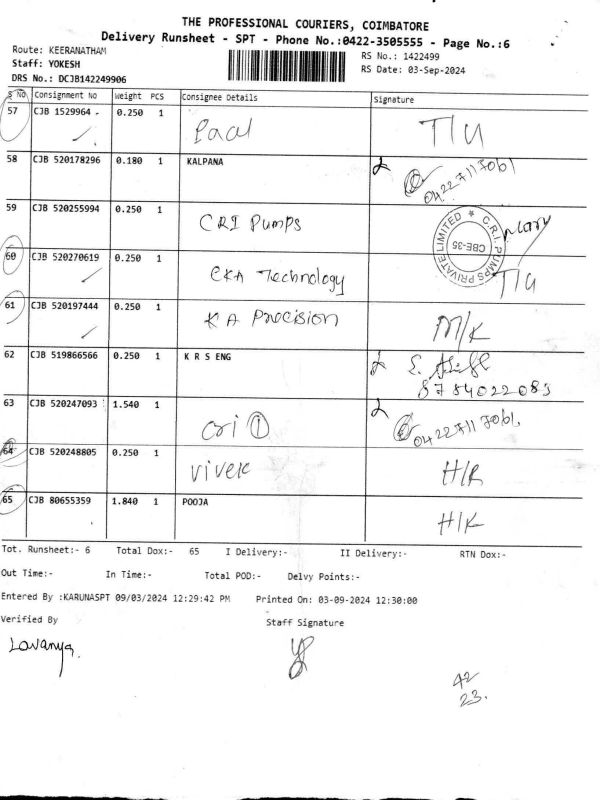 THE PROFESSIONAL COURIERS, COIMBATORE
Delivery Runsheet - SPT - Phone No.:0422-3505555 - Page No.:6
Route: KEERANATHAM
Staff: YOKESH
DRS No.: DCJB142249906
RS No.: 1422499
RS Date: 03-Sep-2024
S No Consignment No Weight PCS Consignee Details Signature
57 CJB 1529964 0.250 1 T/U
58 CJB 520178296 0.180 1 KALPANA 0422 711 7061
59 CJB 520255994 0.250 1 CRI Pumps
C.R.I. PUMPS PRIVATE LIMITED
CBE-35
60 CJB 520270619 0.250 1 Technology T/U
61 CJB 520197444 0.250 1 K A Precision M/K
62 CJB 519866566 0.250 1 K R S ENG
8754022083
63 CJB 520247093 1.540 1 cri ① 0422 711 7061
64 CJB 520248805 0.250 1 vivek H/R
65 CJB 80655359 1.840 1 POOJA H/K
Tot. Runsheet:- 6 Total Dox:- 65 I Delivery:- II Delivery:- RTN Dox:-
Out Time:- In Time:- Total POD:- Delvy Points:-
Entered By :KARUNASPT 09/03/2024 12:29:42 PM Printed On: 03-09-2024 12:30:00
Verified By Staff Signature
Lavanya
42
23.